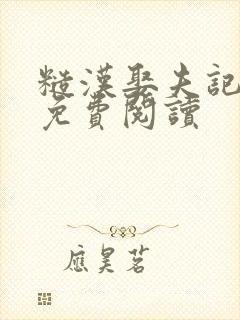 糙漢娶夫記
免費閱讀
應昊茗